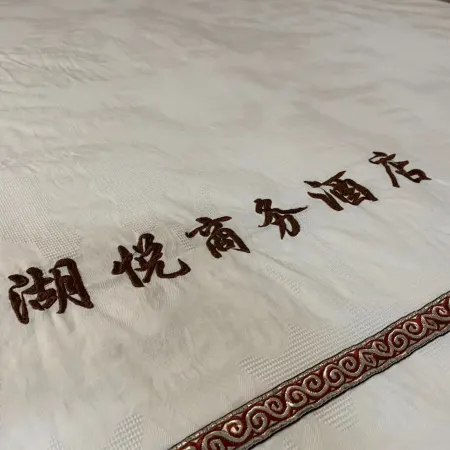 湖悦商务酒店